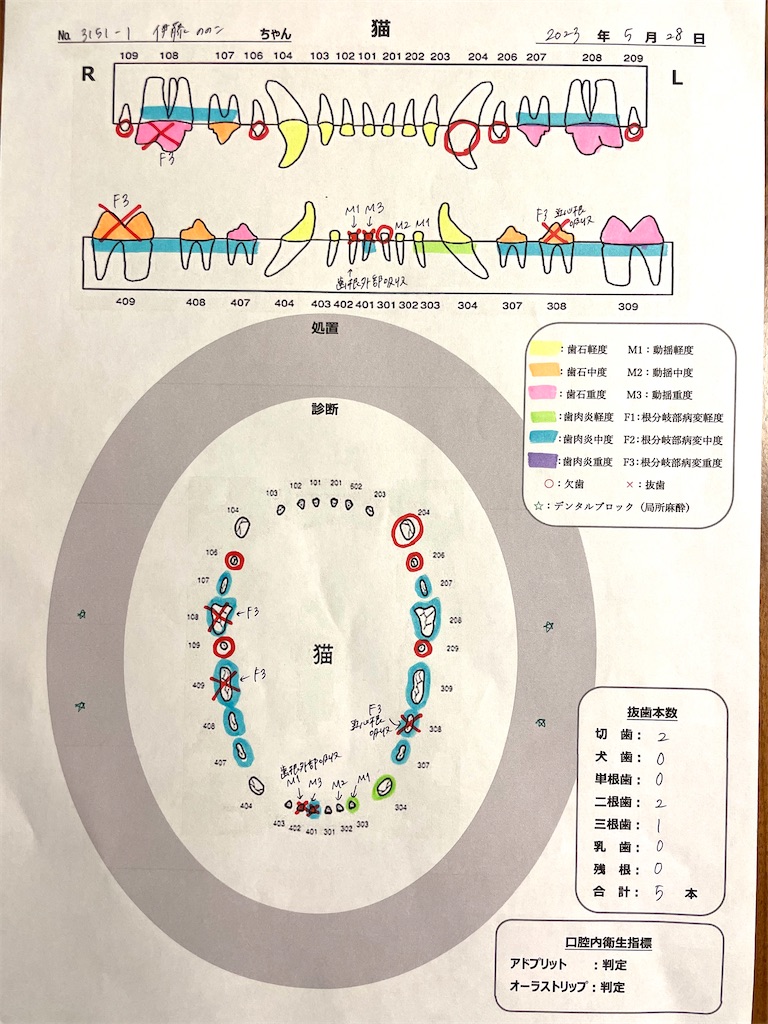 No. 3151-1 伊藤 ののン ちゃん 猫 2023 年 5 月 28 日
109 108 107 106 104 103 102 101 201 202 203 204 206 207 208 209
R L
F3
F3 M1 M3 M2 M1 F3 遠心根吸収
歯根外部吸収
409 408 407 404 403 402 401 301 302 303 304 307 308 309
処置
診断
歯石軽度 M1:動揺軽度
歯石中度 M2:動揺中度
歯石重度 M3:動揺重度
歯肉炎軽度 F1:根分岐部病変軽度
歯肉炎中度 F2:根分岐部病変中度
歯肉炎重度 F3:根分岐部病変重度
○:欠歯 ×:抜歯
☆:デンタルブロック(局所麻酔)
103 102 101 201 602 203
104 204
106 206
107 207
108 ←F3 208
109 209
猫
409 ←F3 309
F3
遠心根吸収
408 308
407 307
歯根外部吸収
M1 M3 M2 M1
404 304
403 402 401 301 302 303
抜歯本数
切歯: 2
犬歯: 0
単根歯: 0
二根歯: 2
三根歯: 1
乳歯: 0
残根: 0
合計: 5 本
口腔内衛生指標
アドプリット :判定
オーラストリップ:判定